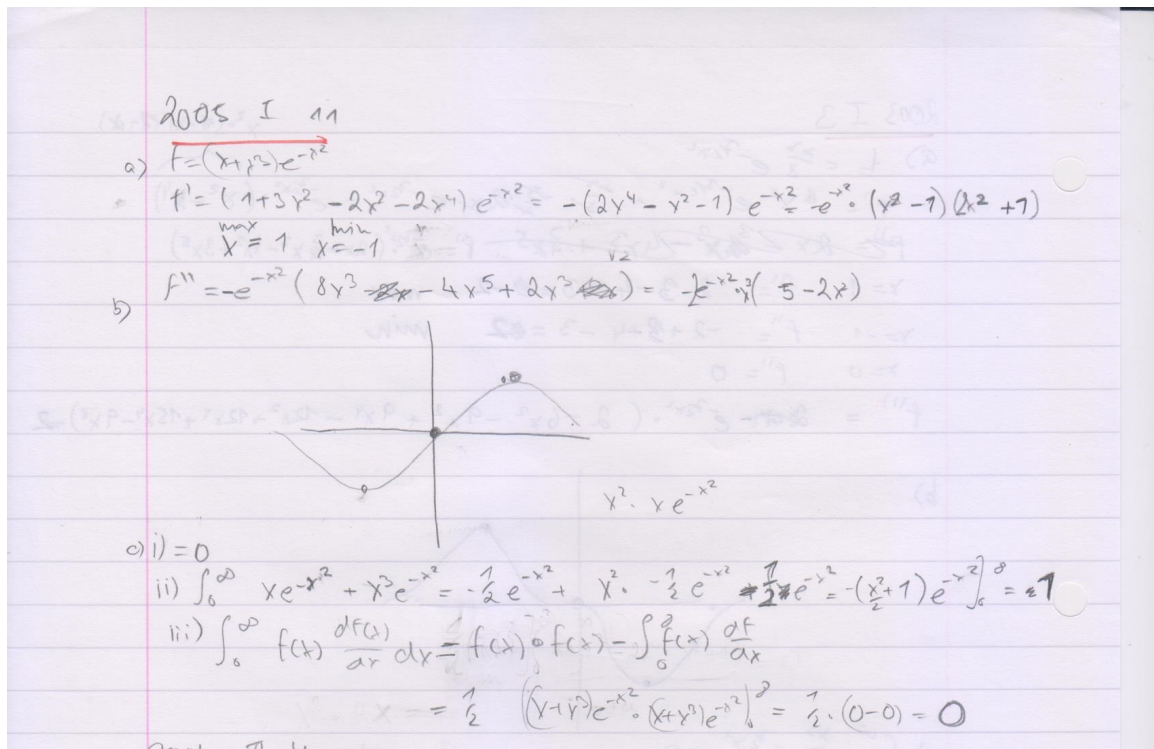 2005 I 11
a) f=(x+x³)e^{-x²}
f'=(1+3x²-2x²-2x⁴)e^{-x²}= -(2x⁴-x²-1)e^{-x²}= -e^{-x²}·(x²-1)(2x²+1)
max min
x=1 x=-1
f''=-e^{-x²}(8x³ -4x⁵+2x³ )= -2e^{-x²}·x³(5-2x²)
b)
x²· xe^{-x²}
c) i) =0
ii) ∫₀^∞ xe^{-x²}+x³e^{-x²}=-½e^{-x²}+ x²· -½e^{-x²} -½e^{-x²}=-(x²/2+1)e^{-x²}]₀^∞ = 1
iii) ∫₀^∞ f(x) df(x)/dx dx = f(x)·f(x)-∫₀^∞ f(x) df/dx
= ½ ((x+x³)e^{-x²}·(x+x³)e^{-x²}]₀^∞ = ½·(0-0)=0